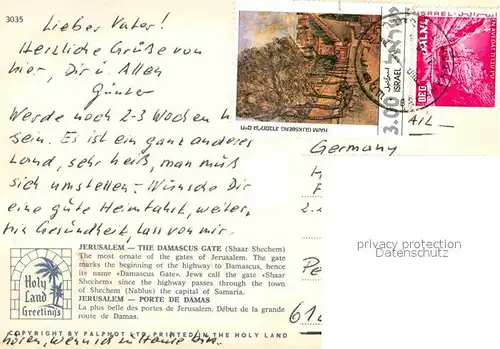 3035
Lieber Vater!
Herzliche Grüße von
hier, Dir u. Allen
Günter
Werde noch 2-3 Wochen h
sein. Es ist ein ganz anderes
Land, sehr heiß, man muß
sich umstellen. - Wünsche Dir
eine gute Heimfahrt, weiter
Gesundheit, lass von mir
hören, wenn ich zu Hause bin.
JERUSALEM — THE DAMASCUS GATE (Shaar Shechem)
The most ornate of the gates of Jerusalem. The gate
marks the beginning of the highway to Damascus, hence
its name «Damascus Gate». Jews call the gate «Shaar
Shechem» since the highway passes through the town
of Shechem (Nablus) the capital of Samaria.
JERUSALEM — PORTE DE DAMAS
La plus belle des portes de Jerusalem. Début de la grande
route de Damas.
Holy
Land
Greetings
COPYRIGHT BY PALPHOT LTD. PRINTED IN THE HOLY LAND
3.00 ISRAEL ישראל
ISRAEL
AIL
Germany
privacy protection
Datenschutz